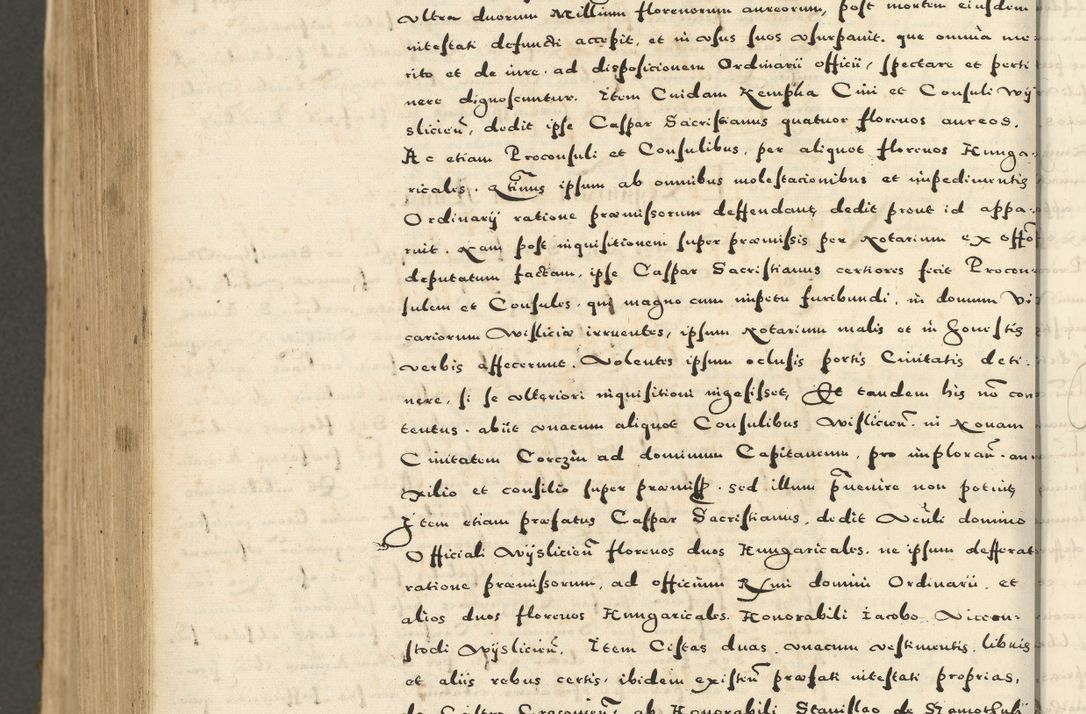 vltra duorum Millium florenorum aureorum, post mortem eiusdem
intestati defuncti accepit, et in vsus suos vsurpauit. que omnia me
rito et de iure. ad dispositionem Ordinarii officii, spectare et perti
nere dignoscuntur. Item Cuidam Kempha Ciui et Consuli Wij
slicień, dedit ipse Caspar Sacristianus quatuor florenos aureos.
Ac etiam Proconsuli et Consulibus, per aliquot florenos Hunga-
ricales. ipsum ab omnibus molestacionibus et impedimentis
Ordinarij ratione præmissorum deffendant, dedit prout id appa-
ruit. Nam post inquisitionem super præmissis per Notarium ex offo
deputatum factam, ipse Caspar Sacristianus certiores fecit Procon-
sulem et Consules, qui magno cum impetu furibundi, in domum Vi
cariorum Wisliciæ irruentes, ipsum Notarium malis et in honestis
verbis affecerunt. Volentes ipsum oclusis portis Ciuitatis deti-
nere, si se vlteriori inquisitioni ingesisset, Et tandem his nō con
tentus. abiit vnacum aliquot Consulibus Wislicień. in Nouam
Ciuitatem Corczin ad dominum Capitaneum, pro imploran. au
xilio et consilio super præmiss. sed illum puenire non potuit,
Item etiam præfatus Caspar Sacristianus, dedit Venli domino
Officiali Wyslicień florenos duos Hungaricales, ne ipsum defferat
ratione præmissorum, ad officium Rmi domini Ordinarii, et
alios duos florenos Hungaricales. Honorabili Iacobo Vicecu-
stodi Wyslicień. Item Cistas duas, vnacum vestimentis, libris
et aliis rebus certis, ibidem existen præfati intestati proprias,
de Castro Cracouień ab Honorabili Stanislao de